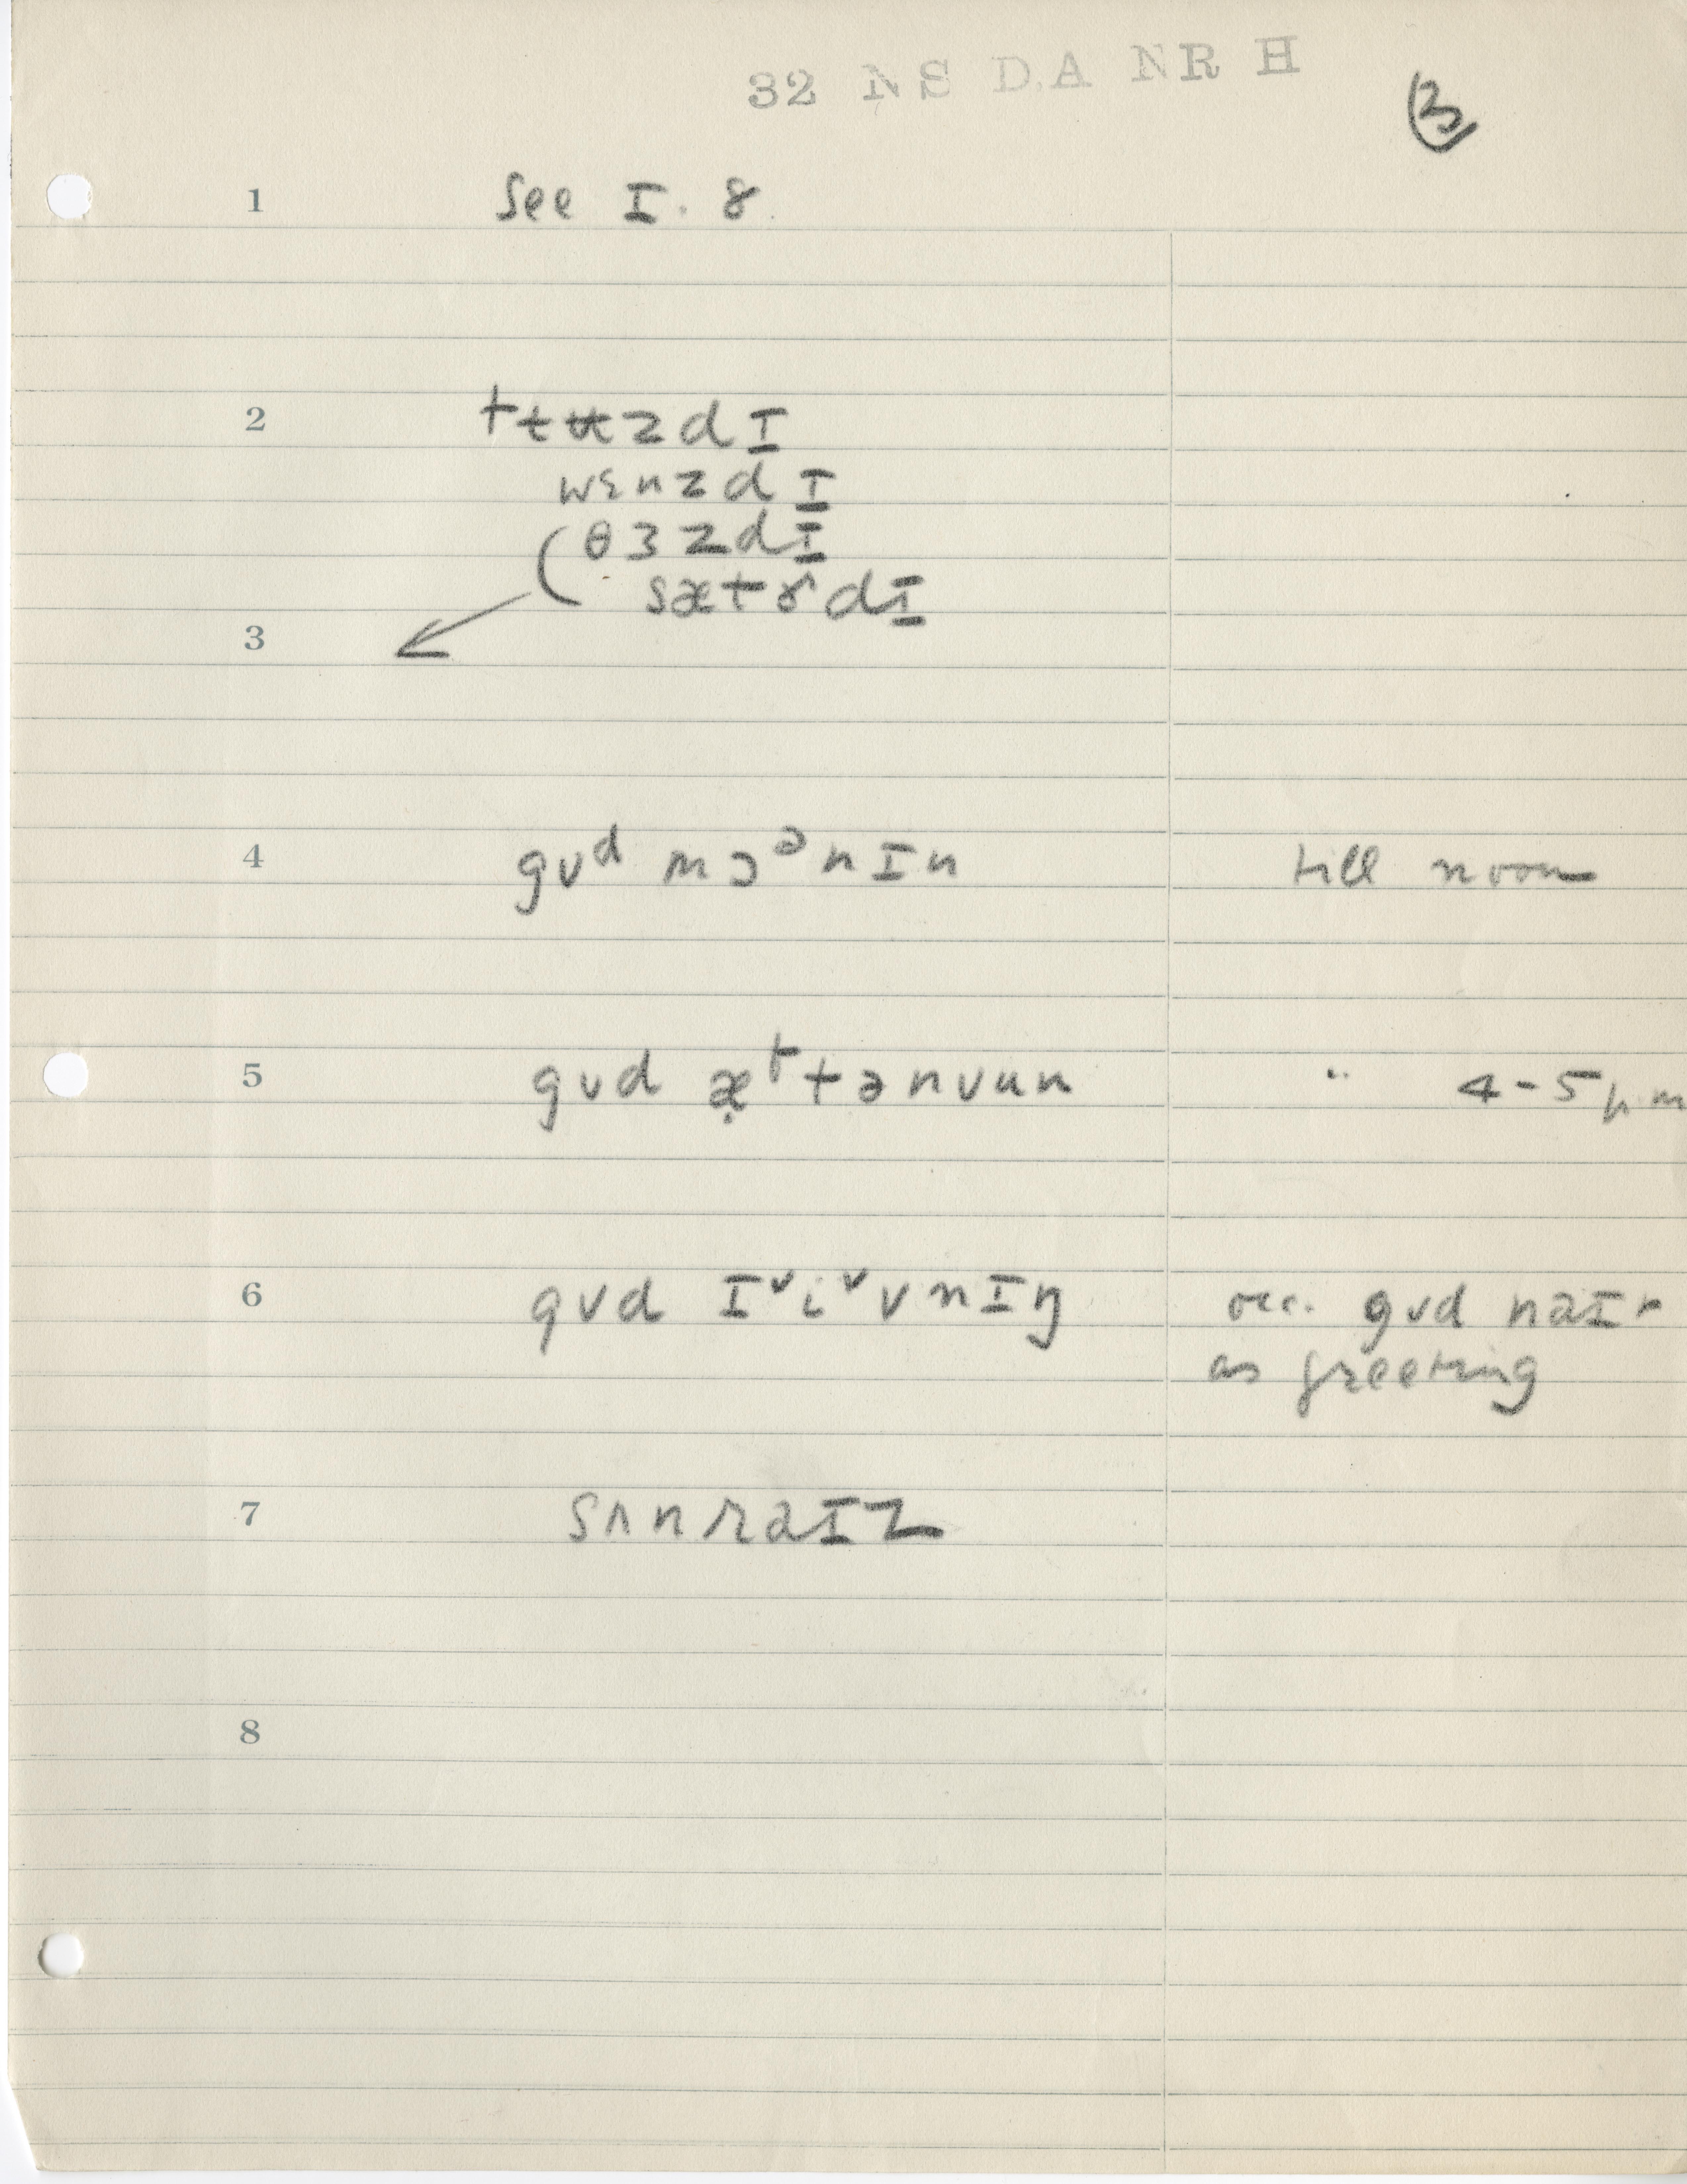 32 NS D.A NR H
3
1 See I. 8
2 tʉʉzdɪ
wɛnzdɪ
(θɜzdɪ
sætɚdɪ
3
4 gʊᵈ mɔᵊnɪn till noon
5 gʊd æ̣ᶠtənʊun " 4-5 p.m
6 gʊd ɪˇiˇvnɪŋ occ. gʊd naɪt
as greeting
7 sʌnraɪz
8